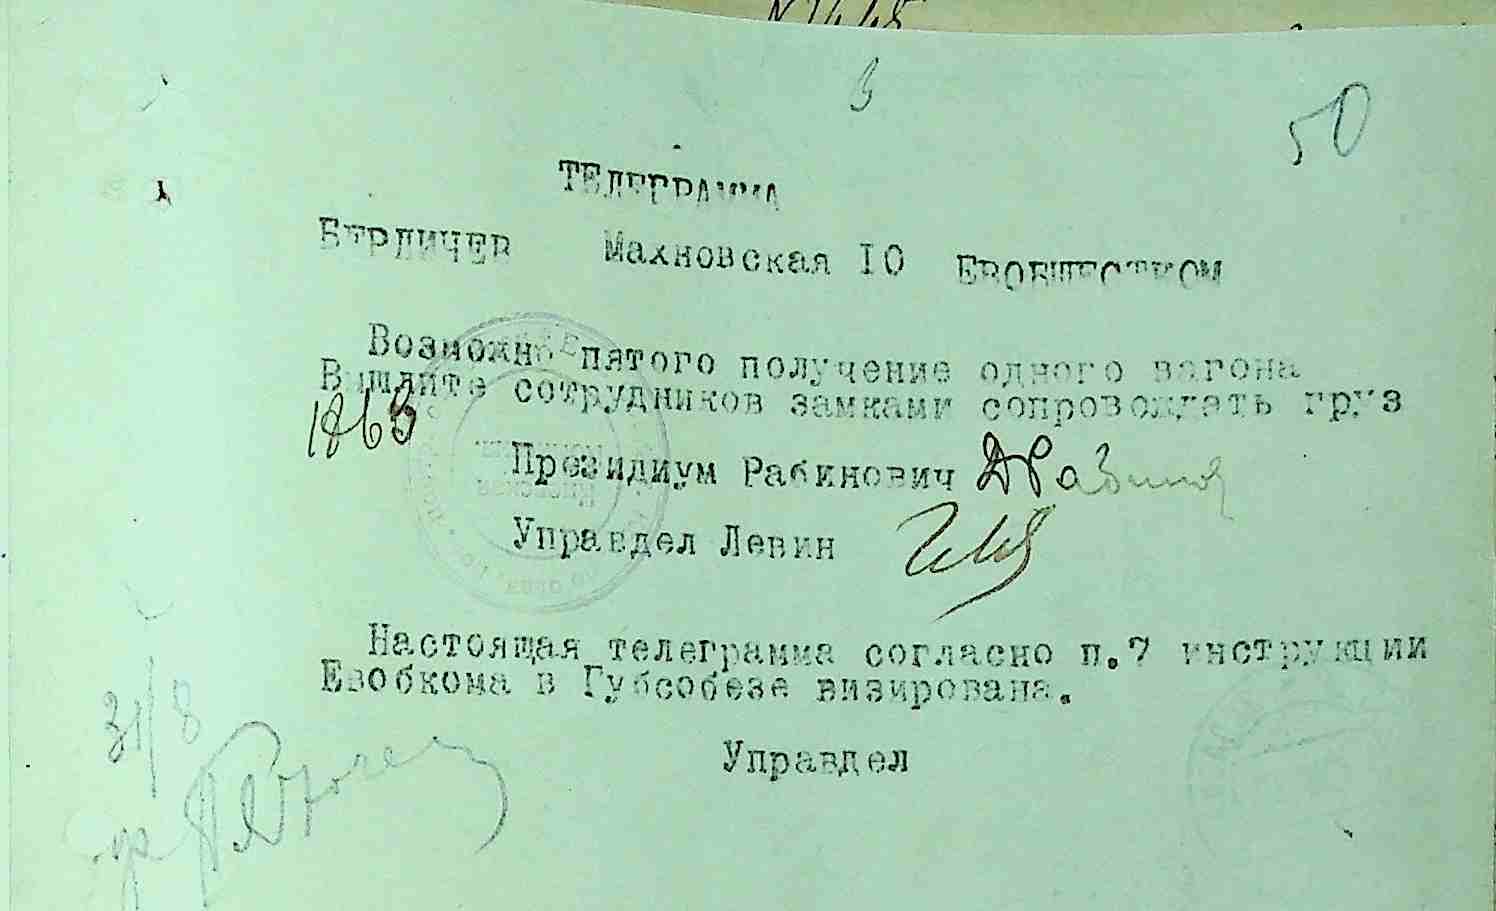 50
ТЕЛЕГРАММА
БЕРДИЧЕВ Махновская 10 ЕВОБЩЕСТКОМ
Возможно пятого получение одного вагона
Вышлите сотрудников замками сопровождать груз
1863
Президиум Рабинович
Управдел Левин
Настоящая телеграмма согласно п.7 инструкции
Евобкома в Губсобезе визирована.
31/8
Управдел